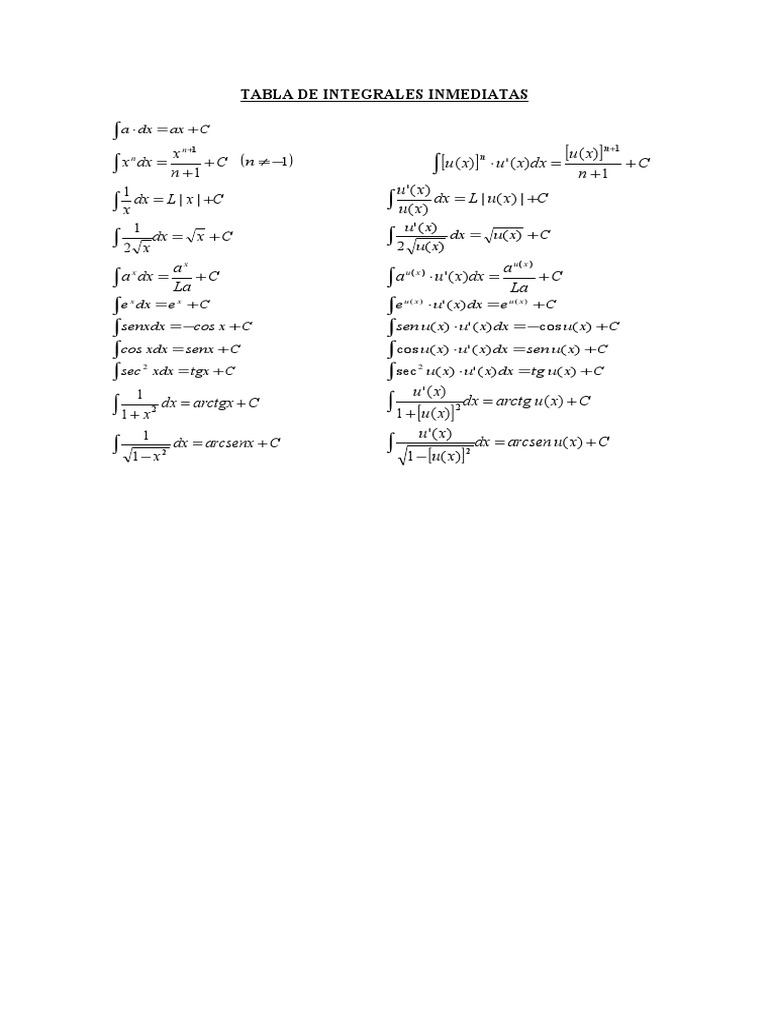 TABLA DE INTEGRALES INMEDIATAS
∫a·dx = ax + C
∫xⁿdx = xⁿ⁺¹/(n+1) + C (n ≠ −1) ∫[u(x)]ⁿ·u'(x)dx = [u(x)]ⁿ⁺¹/(n+1) + C
∫1/x dx = L|x| + C ∫u'(x)/u(x) dx = L|u(x)| + C
∫1/(2√x) dx = √x + C ∫u'(x)/(2√u(x)) dx = √u(x) + C
∫aˣdx = aˣ/La + C ∫a^u(x)·u'(x)dx = a^u(x)/La + C
∫eˣdx = eˣ + C ∫e^u(x)·u'(x)dx = e^u(x) + C
∫senxdx = −cos x + C ∫sen u(x)·u'(x)dx = −cos u(x) + C
∫cos xdx = senx + C ∫cos u(x)·u'(x)dx = sen u(x) + C
∫sec² xdx = tgx + C ∫sec² u(x)·u'(x)dx = tg u(x) + C
∫1/(1+x²) dx = arctgx + C ∫u'(x)/(1+[u(x)]²) dx = arctg u(x) + C
∫1/√(1−x²) dx = arcsenx + C ∫u'(x)/√(1−[u(x)]²) dx = arcsen u(x) + C